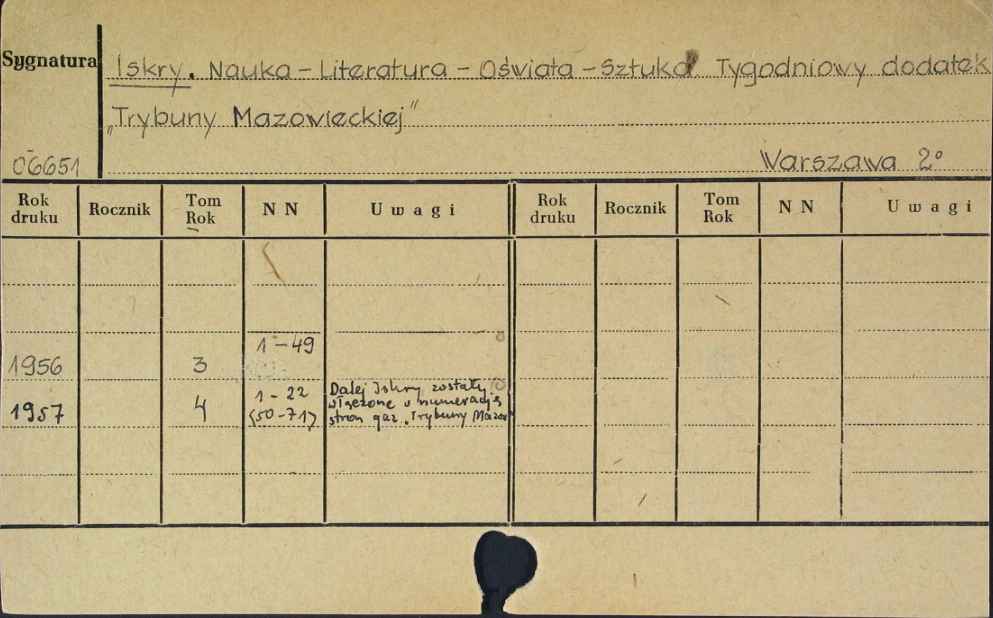 Sygnatura
Iskry. Nauka – Literatura – Oświata – Sztuka Tygodniowy dodatek
„Trybuny Mazowieckiej”
06651
Warszawa 2°
Rok druku Rocznik Tom Rok NN Uwagi Rok druku Rocznik Tom Rok NN Uwagi
1956 3 1 – 49
1957 4 1 – 22 (50 – 71)
Dalej Iskry zostały
włączone w numerację
stron gaz. „Trybuny Mazow